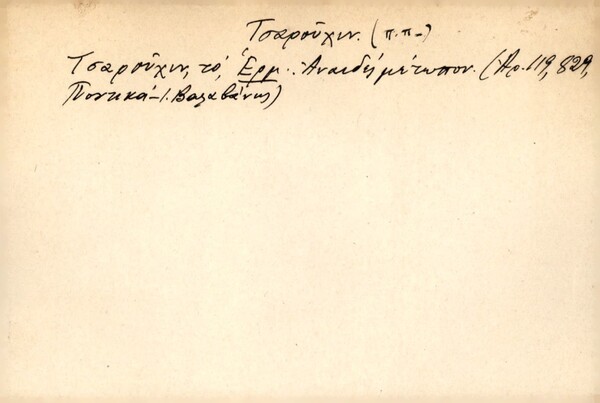 Τσαρούχιν. (π.π.)
Τσαρούχιν, τό, Ἑρμ.: Ἀναιδές μέτωπον. (Ἀρ. 119, 829,
Ποντικά - Ι. Βαλαβάνης)